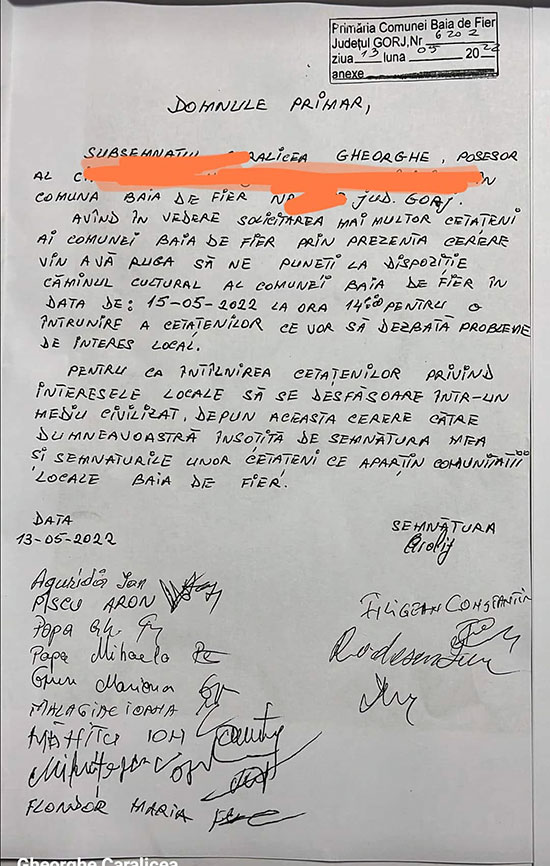 Primăria Comunei Baia de Fier
Județul GORJ, Nr 6202
ziua 13 luna 05 2022
anexe
DOMNULE PRIMAR,
SUBSEMNATUL GHEORGHE, POSESOR
AL
COMUNA BAIA DE FIER JUD. GORJ.
AVÎND ÎN VEDERE SOLICITAREA MAI MULTOR CETATENI
AI COMUNEI BAIA DE FIER PRIN PREZENTA CERERE
VIN A VĂ RUGA SĂ NE PUNETI LA DISPOZIȚIE
CĂMINUL CULTURAL AL COMUNEI BAIA DE FIER ÎN
DATA DE: 15-05-2022 LA ORA 14:00 PENTRU O
ÎNTRUNIRE A CETATENILOR CE VOR SĂ DEZBATĂ PROBLEME
DE INTERES LOCAL.
PENTRU CA ÎNTÎLNIREA CETAȚENILOR PRIVIND
INTERESELE LOCALE SĂ SE DESFĂSOARE ÎNTR-UN
MEDIU CIVILIZAT, DEPUN ACEASTA CERERE CĂTRE
DUMNEAVOASTRĂ ÎNSOTITĂ DE SEMNĂTURA MEA
SI SEMNATURILE UNOR CETĂTENI CE APARȚIN COMUNITATII
LOCALE BAIA DE FIER.
DATA
13-05-2022
SEMNĂTURA
PISCU ARON
Popa Gh.
Popa Mihaela
Mariana
IOANA
ION
FLONDOR MARIA
FILIGEAN CONSTANTIN
Gheorghe Caralicea